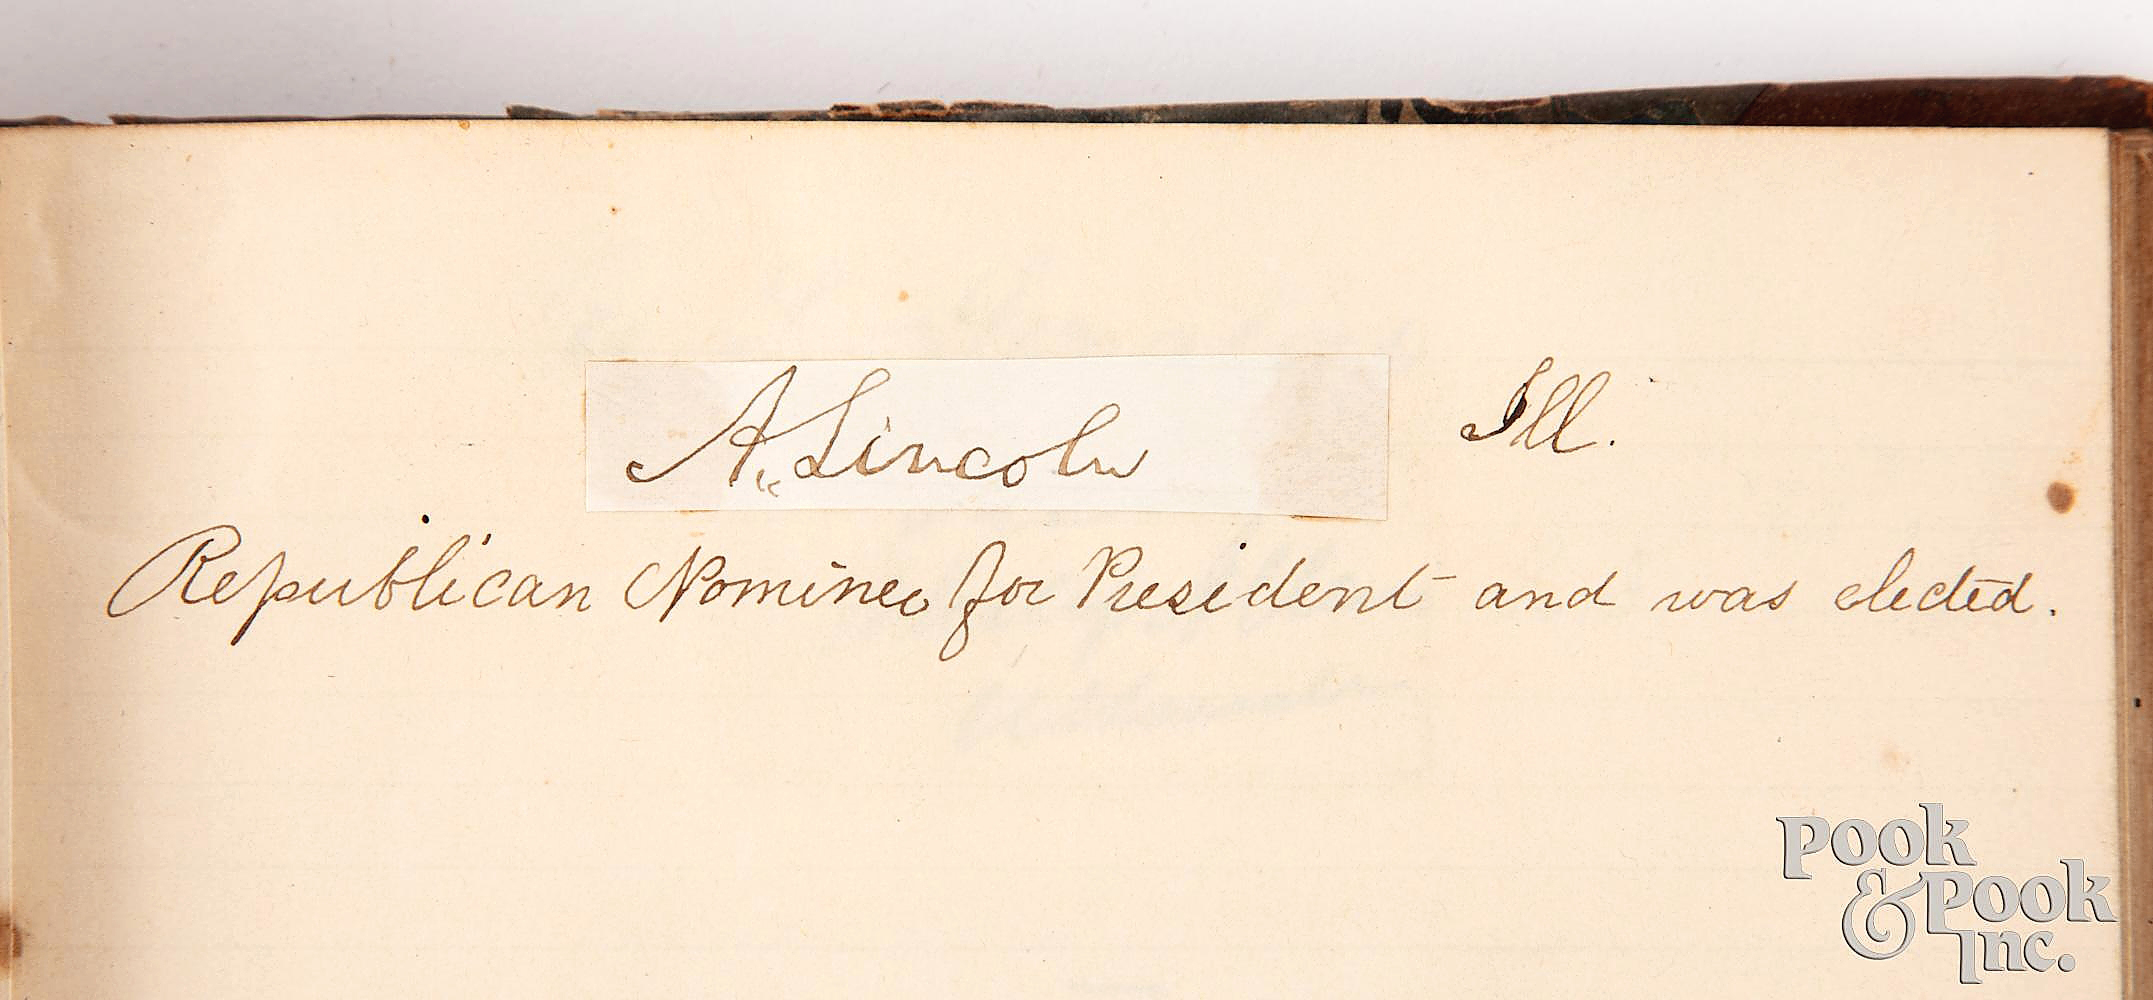 A. Lincoln Ill.
Republican Nominee for President and was elected.
Pook
& Pook
Inc.